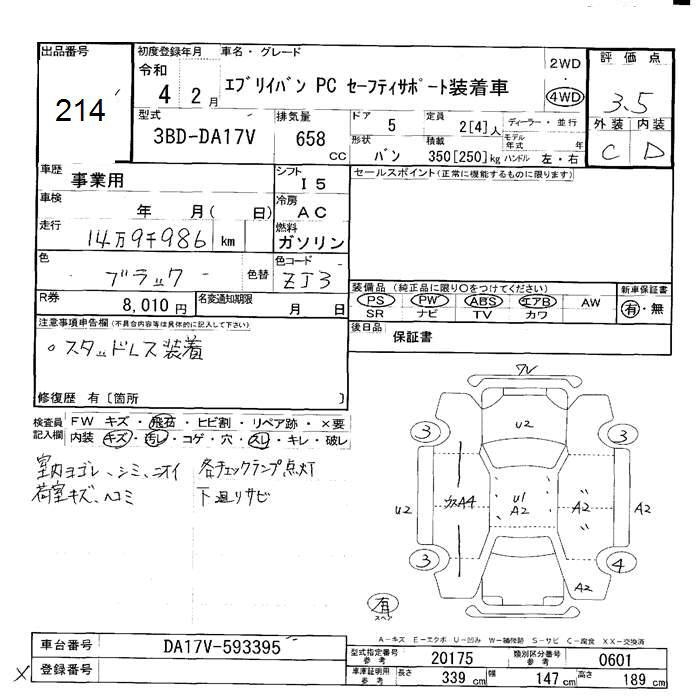 出品番号 初度登録年月 車名・グレード 2WD 評価点
214 令和 4 2月 エブリイバン PC セーフティサポート装着車 4WD 3.5
型式 排気量 ドア 5 定員 2[4]人 ディーラー・並行 外装 内装
3BD-DA17V 658 CC 形状 バン 積載 350[250]kg モデル年式 年 ハンドル 左・右 C D
車歴 事業用 シフト I5 セールスポイント(正常に機能するものに限ります)
車検 年 月( 日) 冷房 AC
走行 14万9千986 km 燃料 ガソリン
色 ブラック 色替 色コード ZJ3
装備品(純正品に限り○をつけてください) 新車保証書
R券 8,010円 名変通知期限 月 日 PS PW ABS エアB AW 有・無
SR ナビ TV カワ
注意事項申告欄(不具合内容等は具体的に記入して下さい) 後日品 保証書
○スタッドレス装着
修復歴 有〔箇所 〕
検査員記入欄 FW キズ・飛石・ヒビ割・リペア跡・×要
内装 キズ・汚レ・コゲ・穴・スレ・キレ・破レ
室内ヨゴレ、シミ、ニオイ 各チェックランプ点灯
荷室キズ、ヘコミ 下廻りサビ
U2
3 3
U2 A4 U1 A2 A2 A2
3 4
A2
有
スペア
A-キズ E-エクボ U-凹み W-補修跡 S-サビ C-腐食 XX-交換済
車台番号 DA17V-593395 型式指定番号 参考 20175 類別区分番号 参考 0601
× 登録番号 車庫証明用 参考 長さ 339 cm 幅 147 cm 高さ 189 cm